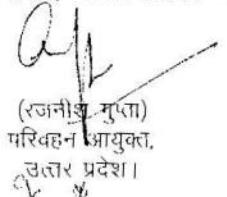 (रजनीश गुप्ता)
परिवहन आयुक्त,
उत्तर प्रदेश।